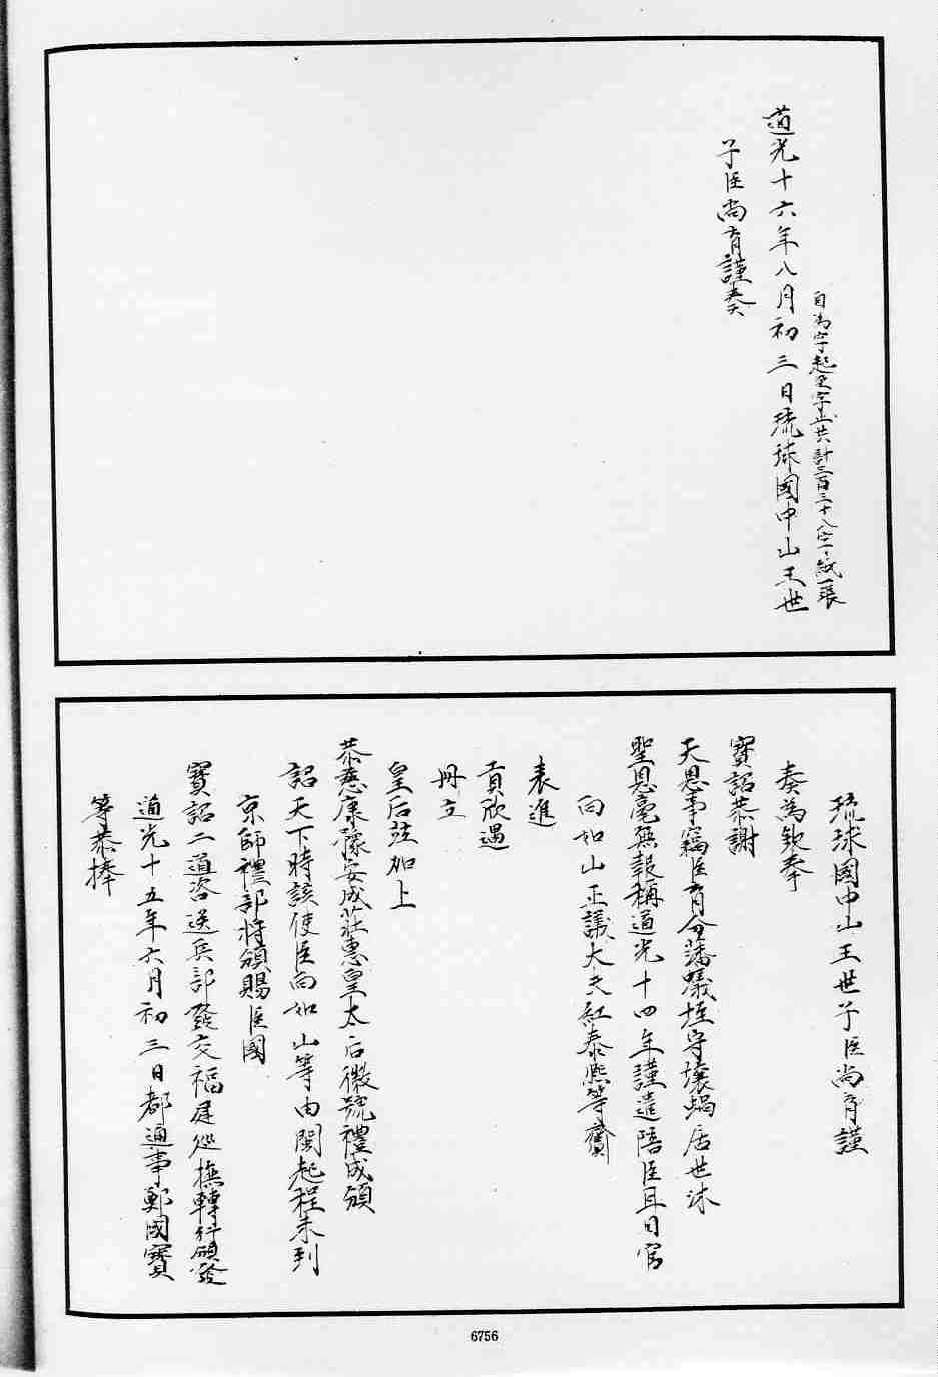 自為字起至字止共計三百三十八字紙一張
道光十六年八月初三日琉球國中山王世
子臣尚育謹奏
琉球國中山王世子臣尚育謹
奏為欽奉
寶詔恭謝
天恩事竊臣育分藩蟻垤守壤蝸居世沐
聖恩毫無報稱道光十四年謹遣陪臣耳目官
向如山正議大夫紅泰熙等齎
表進
貢欣遇
冊立
皇后並加上
恭慈康豫安成莊惠皇太后徽號禮成頒
詔天下時該使臣向如山等由閩起程未到
京師禮部将頒賜臣國
寶詔二道咨送兵部發交福建巡撫轉行頒發
道光十五年六月初三日都通事鄭國寶
等恭捧
6756